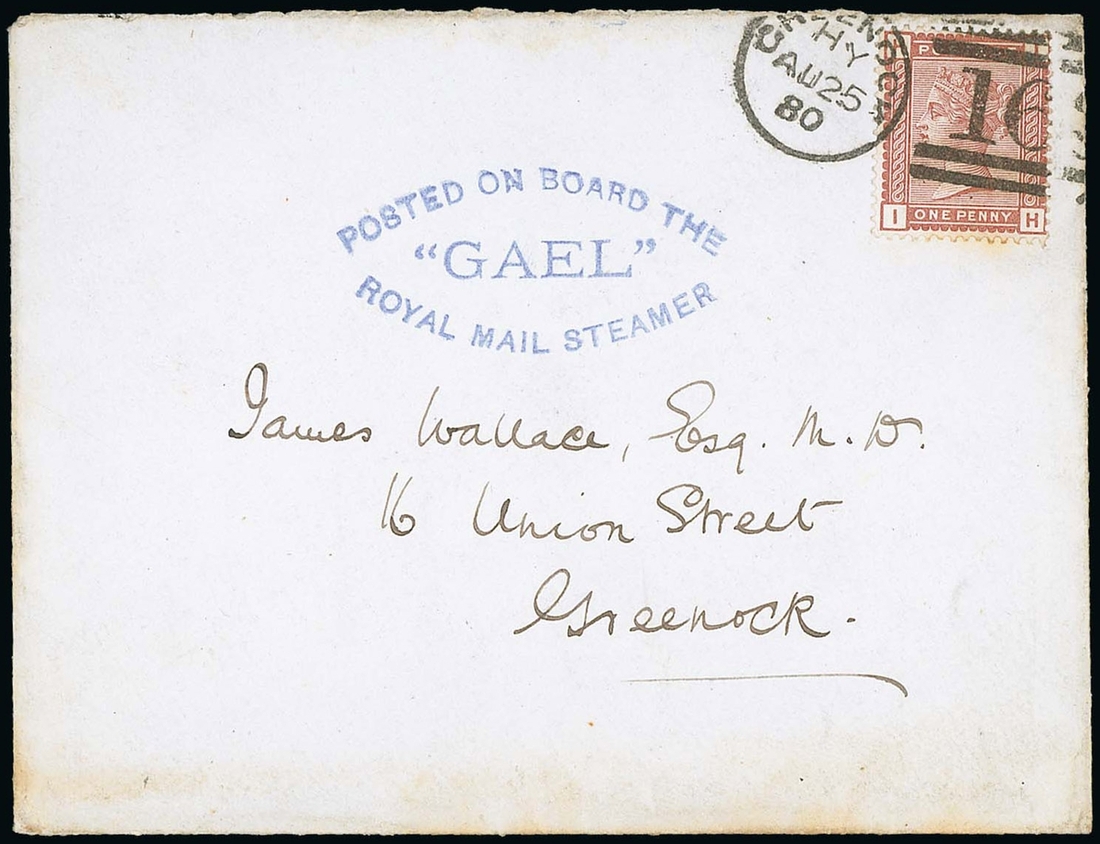 GREENOCK
HY
AU 25
80
P
ONE PENNY
I H
POSTED ON BOARD THE
"GAEL"
ROYAL MAIL STEAMER
James Wallace, Esq. M. D.
16 Union Street
Greenock.